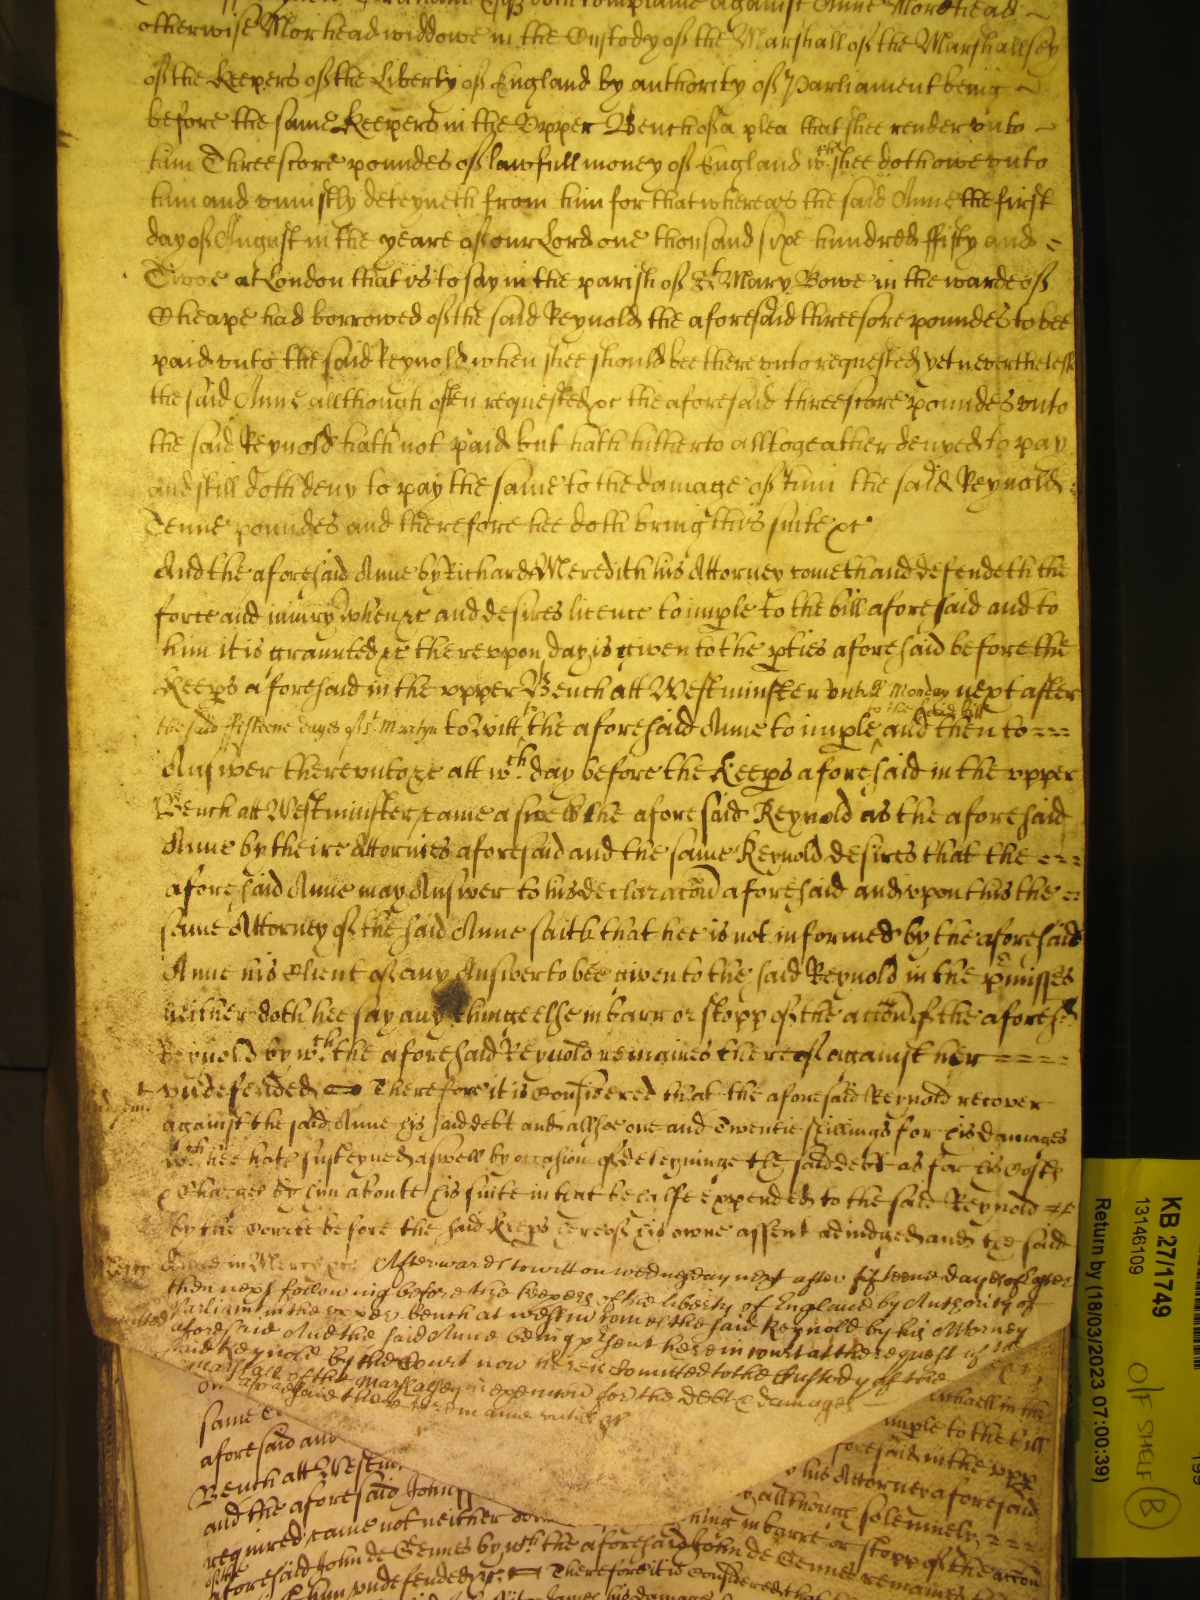 doth complaine against Anne Morehead
otherwise Morhead widdowe in the Custody of the Marshall of the Marshallsey
of the Keepers of the Liberty of England by authority of Parliament being
before the same Keepers in the Upper Bench of a plea that shee render vnto
him Threescore poundes of lawfull money of England wch shee doth owe vnto
him and vniustly deteyneth from him for that whereas the said Anne the first
day of August in the yeare of our Lord one thousand sixe hundred fifty and
Twoe at London that is to say in the parish of St Mary Bowe in the warde of
Cheape had borrowed of the said Reynold the aforesaid threesore poundes to bee
paid vnto the said Reynold when shee should bee there vnto requested yet neverthelesse
the said Anne allthough often requested &c the aforesaid threescore poundes vnto
the said Reynold hath not paid but hath hitherto alltogeather denyed to pay
and still doth deny to pay the same to the damage of him the said Reynold
Tenne poundes and therefore hee doth bring this suite &c
And the aforesaid Anne by Richard Meredith his Attorney cometh and defendeth the
force and iniury when &c and desires licence to imple to the bill aforesaid and to
him it is graunted &c therevpon day is given to the pties aforesaid before the
Keeps aforesaid in the vpper Bench att Westminster vntill Monday next after
the said fifteene dayes of St Martyn to witt the aforesaid Anne to imple to the said bill and then to
Answer therevnto &c att wch day before the Keeps aforesaid in the vpper
Bench att Westminster came aswell the aforesaid Reynold as the aforesaid
Anne by theire Attornies aforesaid and the same Reynold desires that the
aforesaid Anne may Answer to his declaracon aforesaid and vpon this the
same Attorney of the said Anne saith that hee is not informed by the aforesaid
Anne his Client of any Answer to bee given to the said Reynold in the pmisses
neither doth hee say any thinge else in barr or stopp of the accon of the aforesd
Reynold by wch the aforesaid Reynold remaines thereof against her
vndefended Therefore it is considered that the aforesaid Reynold recover
against the said Anne his said debt and allsoe one and Twentie shillings for his damages
wch hee hath susteyned aswell by occasion of deteyninge the said debt as for his costs
& Charges by him aboute his suite in that behalfe expended to the said Reynold
by the Court before the said Keeps hereof his owne assent adiudged and the said
Anne in Mercy &c Afterwards to witt on wednesday next after fifteene dayes of Easter
then next following before the keepers of the liberty of England by Authority of
Parliamt in the vpper bench at westmr comes the said Reynold by his Attorney
aforesaid And the said Anne being psent here in court at the request of the
said Reynold by the Court now here is Comitted to the Custody of the
Marshall of the Marshallsey in execucon for the debt & damages
aforesaid there to remaine vntill &c
same
imple to the bill
aforesaid and
foresaid in the vpp
Bench att Westm
his Attorney aforesaid
and the aforesaid John
allthough solemnely
required came not neither
thing in barre or stopp of the accon
of the
aforesaid John de Gennes by wch the aforesaid John de Gennes remaines
vndefended &c Therefore it is considered that
KB 27/1749
13146109
Return by (18/03/2023 07:00:39)
O/F SHELF B